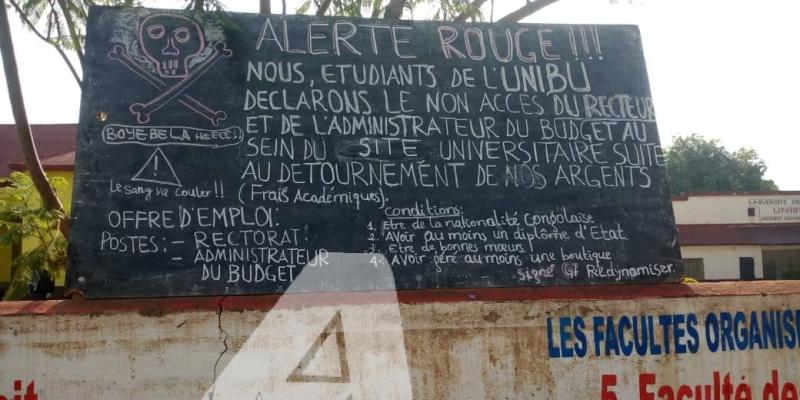 ALERTE ROUGE !!!
NOUS, ETUDIANTS DE L'UNIBU
DECLARONS LE NON ACCES DU RECTEUR
ET DE L'ADMINISTRATEUR DU BUDGET AU
SEIN DU SITE UNIVERSITAIRE SUITE
AU DETOURNEMENT DE NOS ARGENTS
(Frais Académiques).
BOYEBELA
!
Le sang va couler !!
OFFRE D'EMPLOI:
POSTES: - RECTORAT
- ADMINISTRATEUR
DU BUDGET
Conditions:
1. Etre de la nationalité Congolaise
2. Avoir au moins un diplôme d'Etat.
3. Etre de bonnes mœurs
4. Avoir géré au moins une boutique
Signé G7 Redynamiser.
UNIVERSITE DE
UNIB
LES FACULTES ORGANISE
5. Faculté de
oit
A